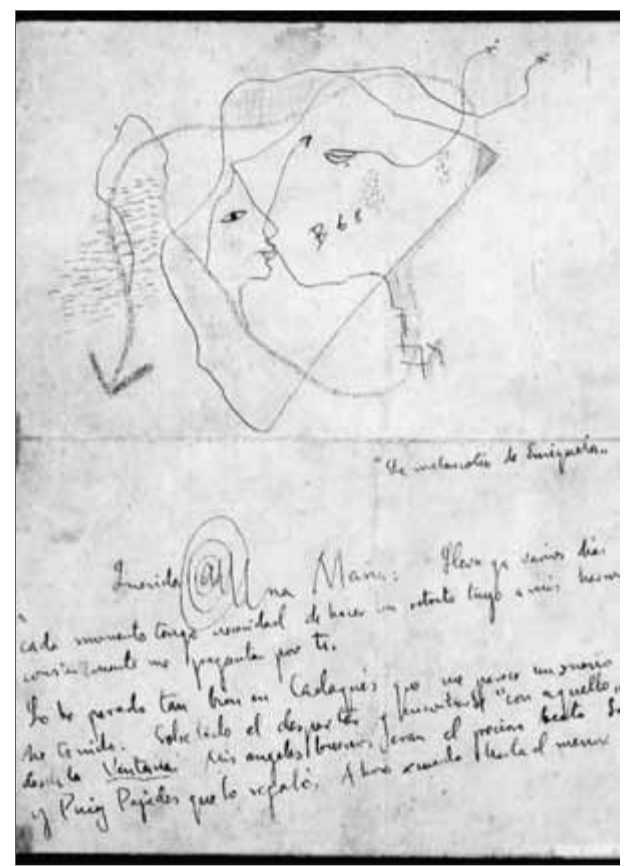 "La melancolía de Enriqueta"
Querida Ana María: Llevo ya varios días
cada momento tengo necesidad de hacer un retrato tuyo a mis
constantemente me preguntan por ti.
Lo he pasado tan bien en Cadaqués que me parece un sueño
he tenido. Sobre todo el despertar y encontrarse "con aquello
desde la Ventana. Mis angeles buenos
y Puig Pujades que lo regaló. Ahora hasta el menor